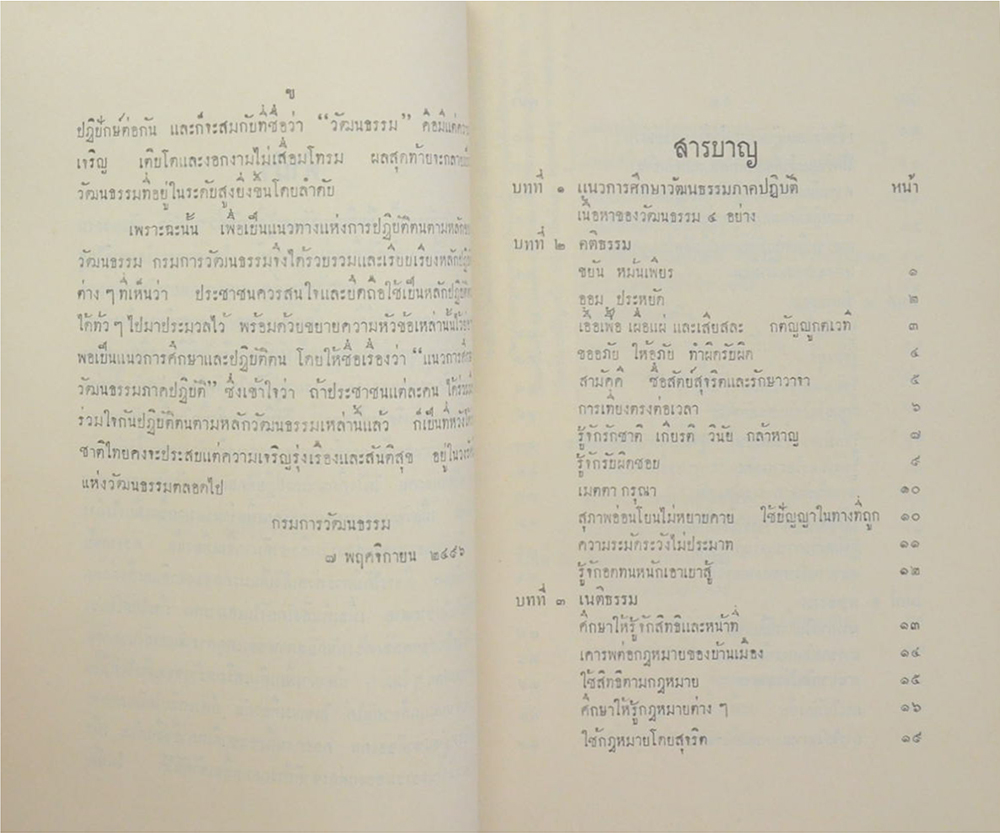 ข
ปฏิปักษ์ต่อกัน และก็จะสมกับที่ชื่อว่า “วัฒนธรรม” คือมีแต่ความ
เจริญ เติบโตและงอกงามไม่เสื่อมโทรม ผลสุดท้ายจะกลาย
วัฒนธรรมที่อยู่ในระดับสูงยิ่งขึ้นโดยลำดับ
เพราะฉะนั้น เพื่อเป็นแนวทางแห่งการปฏิบัติตนตามหลัก
วัฒนธรรม กรมการวัฒนธรรมจึงได้รวบรวมและเรียบเรียงหลักปฏิบัติ
ต่าง ๆ ที่เห็นว่า ประชาชนควรสนใจและยึดถือใช้เป็นหลักปฏิบัติ
ได้ทั่ว ๆ ไปมาประมวลไว้ พร้อมด้วยขยายความหัวข้อเหล่านั้นไว้
พอเป็นแนวการศึกษาและปฏิบัติตน โดยให้ชื่อเรื่องว่า “แนวการศึกษา
วัฒนธรรมภาคปฏิบัติ” ซึ่งเข้าใจว่า ถ้าประชาชนแต่ละคน ได้ร่วมมือ
ร่วมใจกันปฏิบัติตนตามหลักวัฒนธรรมเหล่านี้แล้ว ก็เป็นที่หวังได้
ชาติไทยคงจะประสบแต่ความเจริญรุ่งเรืองและสันติสุข อยู่ในวง
แห่งวัฒนธรรมตลอดไป
กรมการวัฒนธรรม
๗ พฤศจิกายน ๒๔๙๖
สารบาญ
บทที่ ๑ แนวการศึกษาวัฒนธรรมภาคปฏิบัติ หน้า
เนื้อหาของวัฒนธรรม ๔ อย่าง
บทที่ ๒ คติธรรม
ขยัน หมั่นเพียร ๑
ออม ประหยัด ๒
เอื้อเฟื้อ เผื่อแผ่ และเสียสละ กตัญญูกตเวที ๓
ขออภัย ให้อภัย ทำผิดรับผิด ๔
สามัคคี ซื่อสัตย์สุจริตและรักษาวาจา ๕
การเที่ยงตรงต่อเวลา ๖
รู้จักรักชาติ เกียรติ วินัย กล้าหาญ ๗
รู้จักรับผิดชอบ ๙
เมตตา กรุณา ๑๐
สุภาพอ่อนโยนไม่หยาบคาย ใช้ปัญญาในทางที่ถูก ๑๐
ความระมัดระวังไม่ประมาท ๑๑
รู้จักอดทนหนักเอาเบาสู้ ๑๒
บทที่ ๓ เนติธรรม
ศึกษาให้รู้จักสิทธิและหน้าที่ ๑๓
เคารพต่อกฎหมายของบ้านเมือง ๑๔
ใช้สิทธิตามกฎหมาย ๑๕
ศึกษาให้รู้กฎหมายต่าง ๆ ๑๖
ใช้กฎหมายโดยสุจริต ๑๙